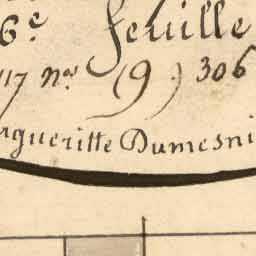 6e feuille
17 nos (9) 306
agueritte Dumesni